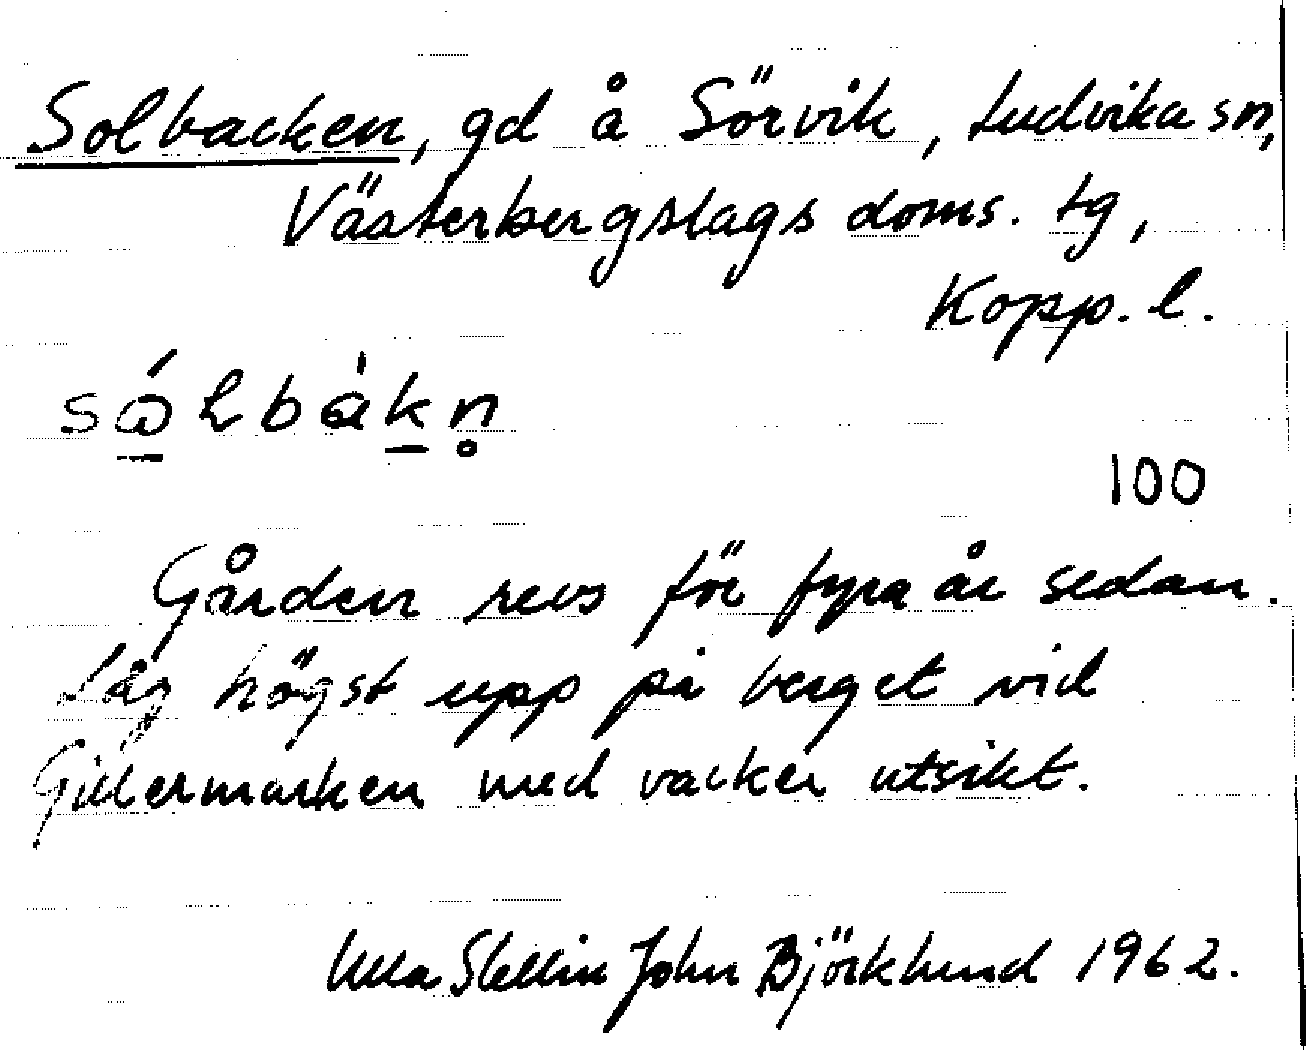 Solbacken, gd å Sörvik, Ludvika sn,
Västerbergslags doms. tg,
Kopp. l.
100
Gården revs för fyra år sedan.
Låg högst upp på berget vid
Gillermarken med vacker utsikt.
Ulla Stellin John Björklund 1962.